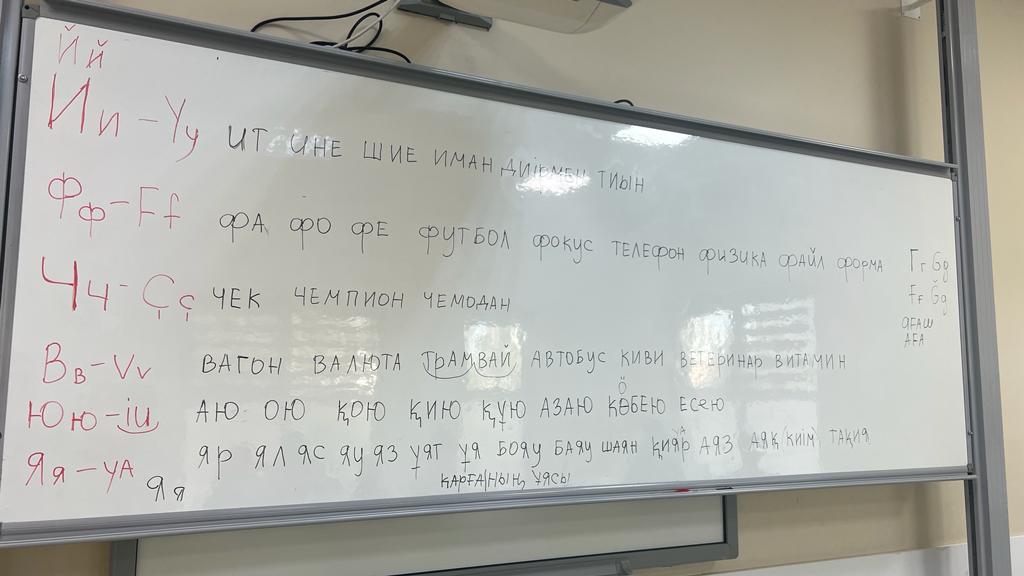 Й й
И и – У у ИТ ИНЕ ШИЕ ИМАН ДИІРМЕН ТИЫН
Ф ф – F f ФА ФО ФЕ ФУТБОЛ ФОКУС ТЕЛЕФОН ФИЗИКА ФАЙЛ ФОРМА
Г г G g
Ч ч – Ç ç ЧЕК ЧЕМПИОН ЧЕМОДАН
Ғ ғ Ğ g
АҒАШ
АҒА
В в – V v ВАГОН ВАЛЮТА ТРАМВАЙ АВТОБУС КИВИ ВЕТЕРИНАР ВИТАМИН
ö
Ю ю – iu АЮ ОЮ ҚОЮ ҚИЮ ҚҰЮ АЗАЮ КӨБЕЮ ЕСеЮ
Я я – УА ЯР ЯЛ ЯС ЯУ ЯЗ ҰЯТ ҰЯ БОЯУ БАЯУ ШАЯН ҚИЯР АЯЗ АЯҚ КИІМ ТАҚИЯ
Я я ҚАРҒА/НЫҢ ҰЯСЫ